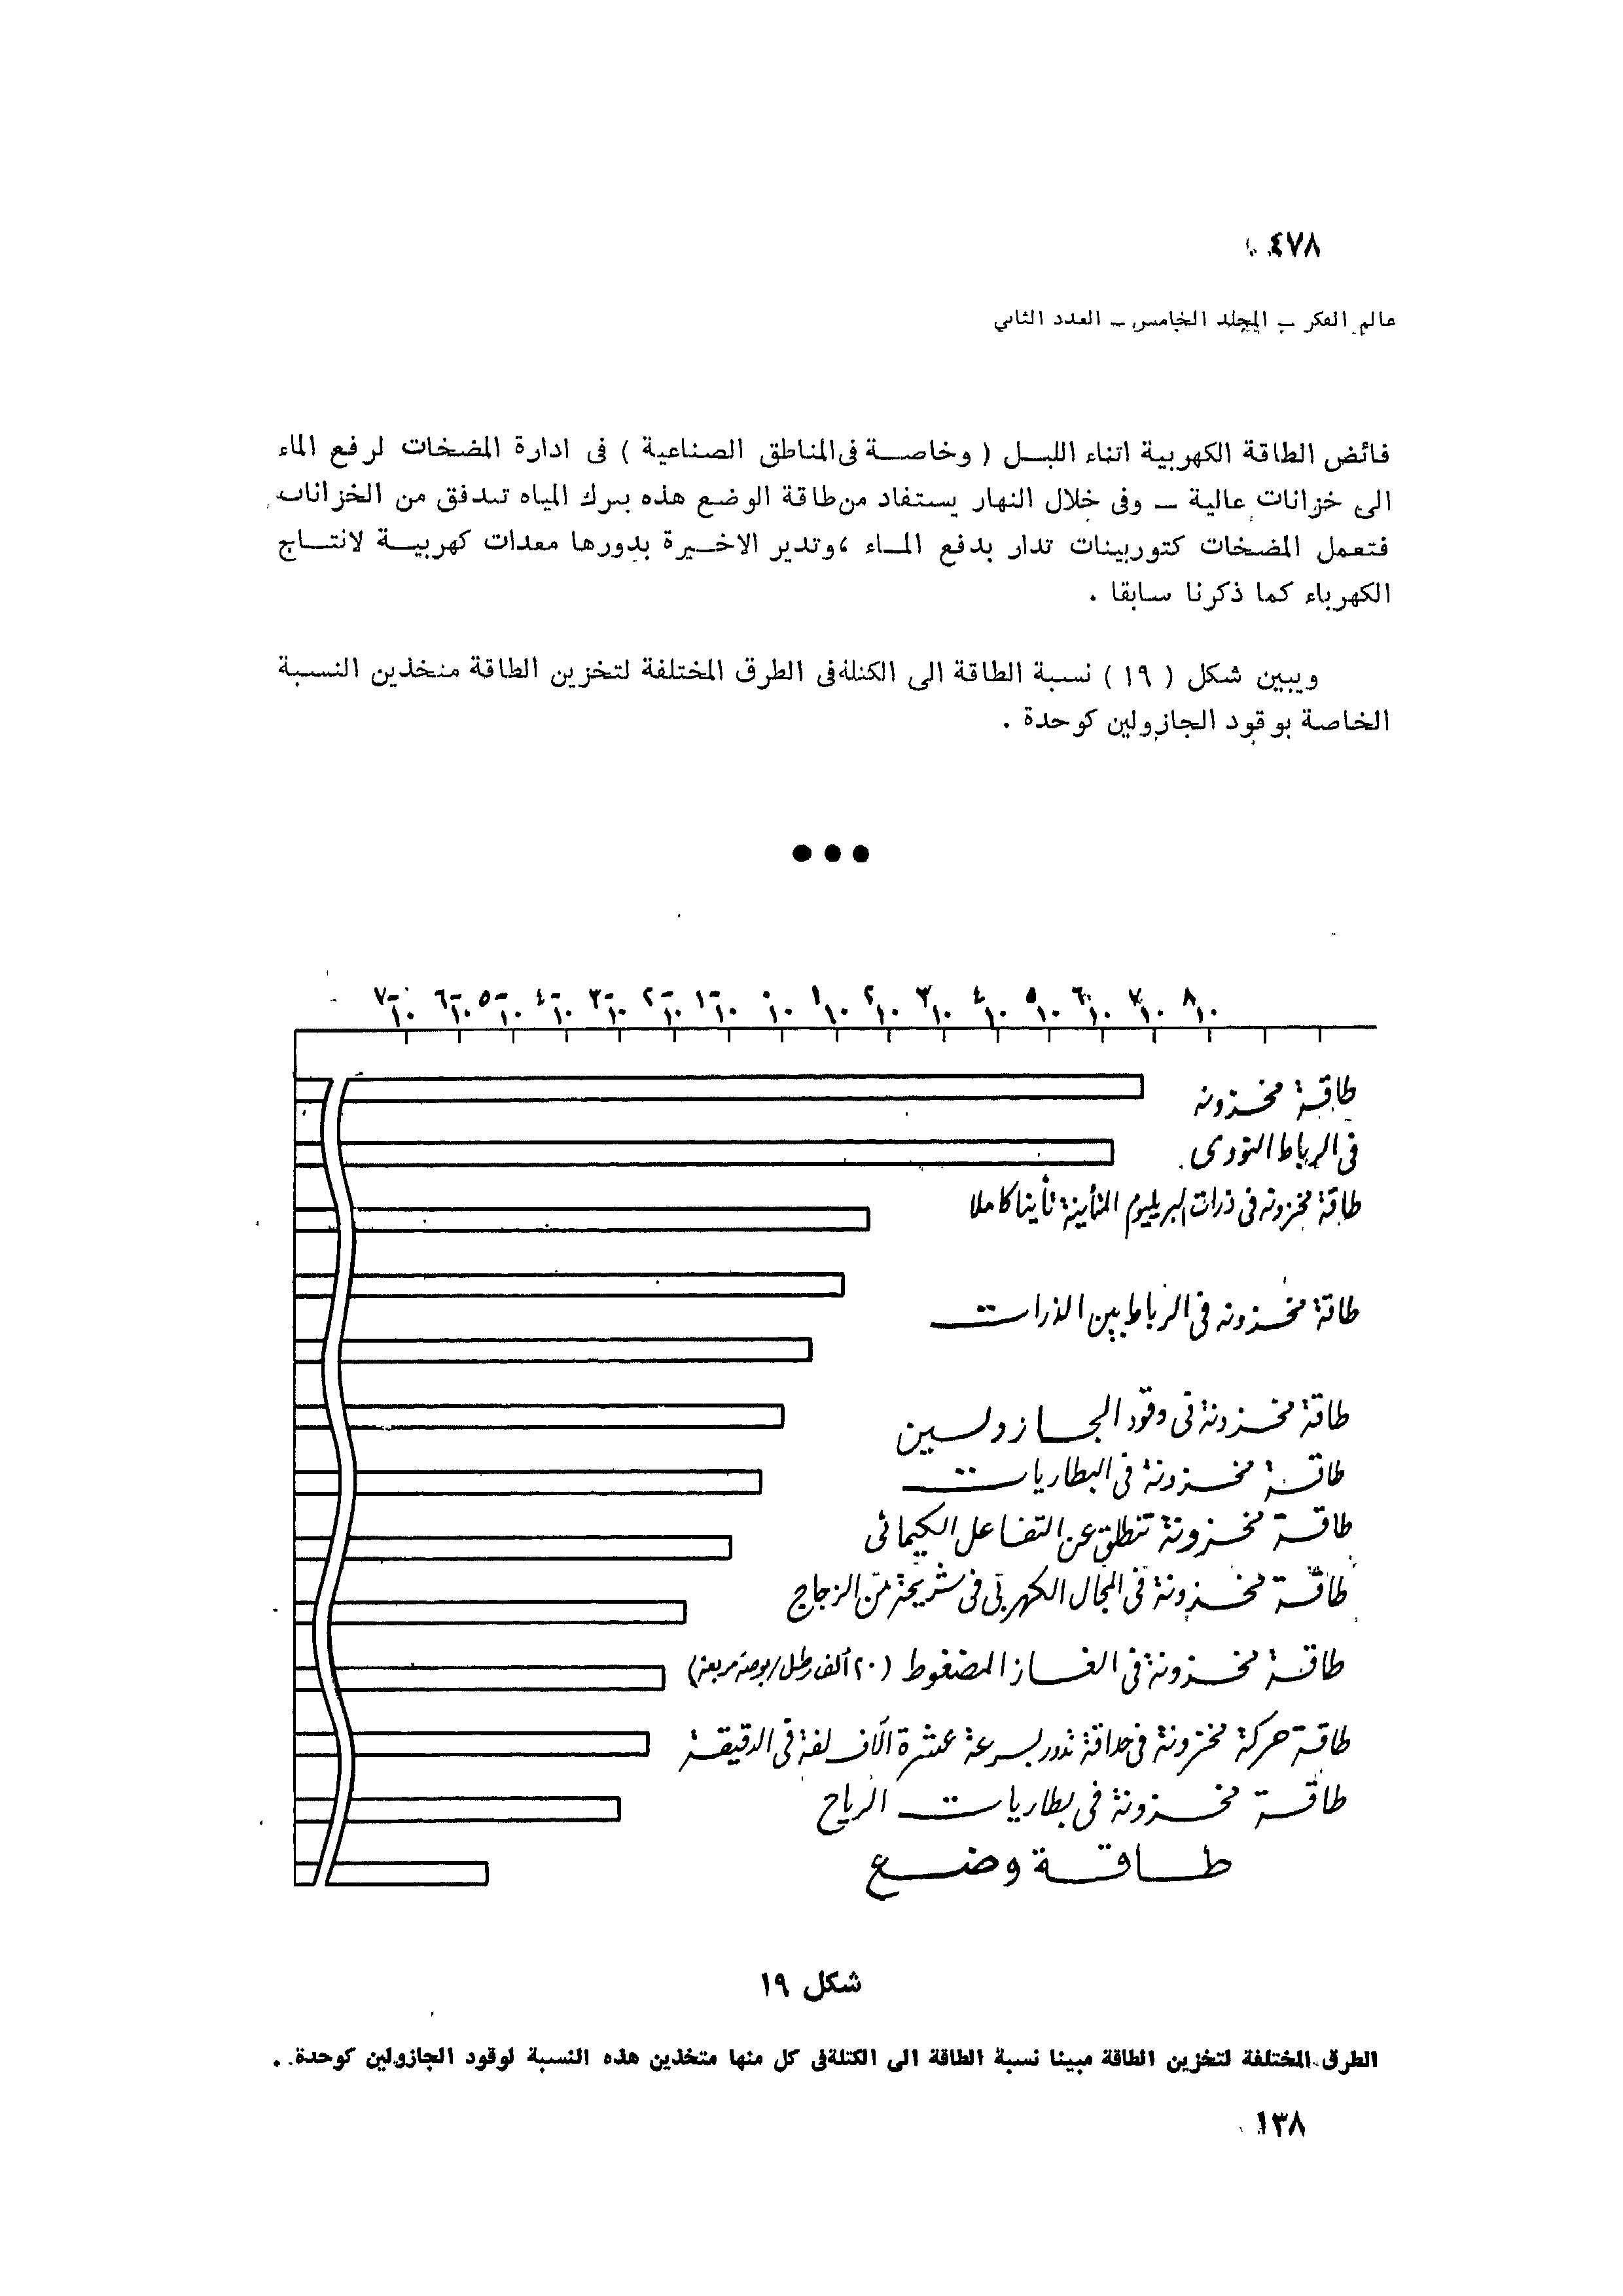 ٤٧٨
عالم الفكر – المجلد الخامس – العدد الثاني
فائض الطاقة الكهربية اثناء الليل ( وخاصة فى المناطق الصناعية ) فى ادارة المضخات لرفع الماء
الى خزانات عالية – وفى خلال النهار يستفاد من طاقة الوضع هذه بترك المياه تتدفق من الخزانات
فتعمل المضخات كتوربينات تدار بدفع الماء ، وتدير الاخيرة بدورها معدات كهربية لانتاج
الكهرباء كما ذكرنا سابقا .
ويبين شكل ( ١٩ ) نسبة الطاقة الى الكتلة فى الطرق المختلفة لتخزين الطاقة متخذين النسبة
الخاصة بوقود الجازولين كوحدة .
١٠⁻٧ ١٠⁻٦ ١٠⁻٥ ١٠⁻٤ ١٠⁻٣ ١٠⁻٢ ١٠⁻١ ١٠٠ ١٠١ ١٠٢ ١٠٣ ١٠٤ ١٠٥ ١٠٦ ١٠٧ ١٠٨
طاقة مخزونه
فى الرباط النووى
طاقة مخزونه فى ذرات البريليوم المتأينة تأينا كاملا
طاقة مخزونه فى الرباط بين الذرات
طاقة مخزونة فى وقود الجازولين
طاقة مخزونة فى البطاريات
طاقة مخزونة تنطلق عن التفاعل الكيمائى
طاقة مخزونة فى المجال الكهربى فى شريحة من الزجاج
طاقة مخزونة فى الغاز المضغوط (٢٠ ألف رطل/بوصة مربعة)
طاقة حركة مخزونة فى حدافة تدور بسرعة عشرة آلاف لفة فى الدقيقة
طاقة مخزونة فى بطاريات الرياح
طاقة وضع
شكل ١٩
الطرق المختلفة لتخزين الطاقة مبينا نسبة الطاقة الى الكتلة فى كل منها متخذين هذه النسبة لوقود الجازولين كوحدة .
١٣٨